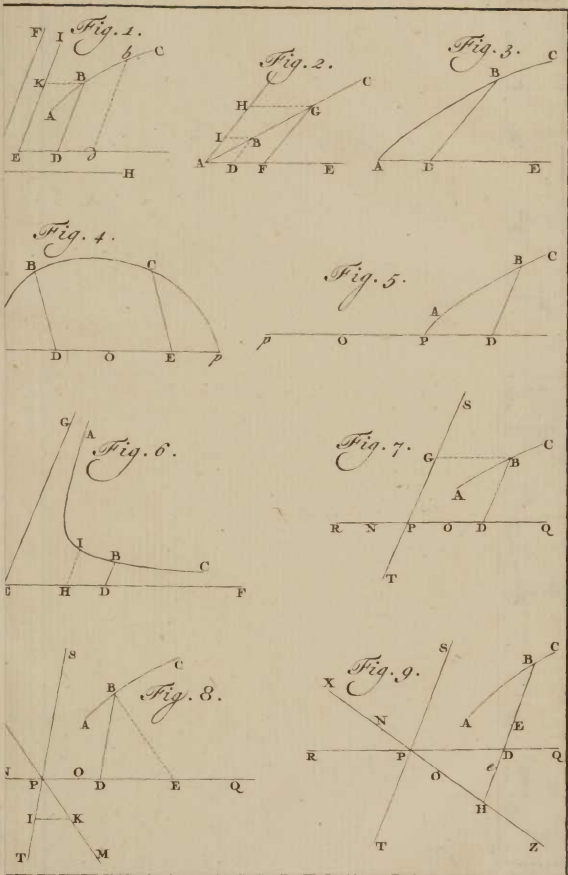 Fig. 1.
F I b C
K B
A
E D d
H
Fig. 2.
C
H G
I B
A D F E
Fig. 3.
C
B
A D E
Fig. 4.
B C
D O E p
Fig. 5.
B C
A
p O P D
Fig. 6.
G A
I B C
H D F
Fig. 7.
S
G B C
A
R N P O D Q
T
Fig. 8.
S
C
B
A
P O D E Q
I K
T M
Fig. 9.
S C
B
X
N A E
R P D Q
O e
H
T Z